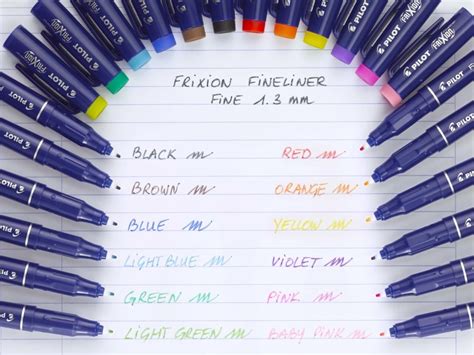 FRIXION FINELINER
FINE 1.3 mm
BLACK m
BROWN m
BLUE m
LIGHT BLUE m
GREEN m
LIGHT GREEN m
RED m
ORANGE m
YELLOW m
VIOLET m
PINK m
BABY PINK m
PILOT
PILOT
PILOT
FRIXION
PILOT
FRIXION
PILOT
PILOT
PILOT
PILOT
PILOT
PILOT